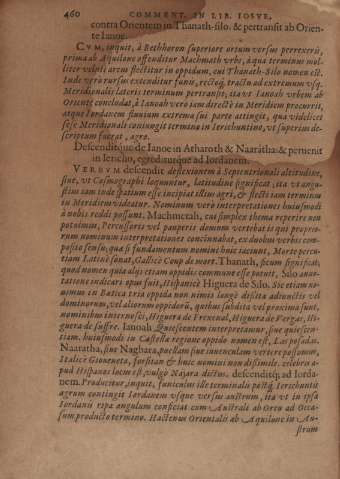 460 COMMENT. IN LIB. IOSVE,
contra Orientem in Thanath-silo. & pertransit ab Orien-
te Ianoe.
CVM, inquit, à Bethhoron superiore ortum versus perrexerit,
prima ab Aquilone offenditur Machmath vrbs, à qua terminus mol-
liter velut arcu flectitur in oppidum, cui Thanath-Silo nomen est.
Inde verò rursus extenditur funis, rectoq; tractu ad extremum vsq;
Meridionalis lateris terminum pertransit, ita vt Ianoah vrbem ab
Oriente concludat, à Ianoah verò iam directè in Meridiem procurrit,
atque Iordanem fluuium extrema sui parte attingit, qua videlicet
sese Meridionali coniungit termino in Ierichuntino, vt superiùs de-
scriptum fuerat, agro.
Descenditque de Ianoe in Atharoth & Naaratha: & peruenit
in Iericho, egrediturque ad Iordanem.
VERBVM descendit deflexionem à Septentrionali altitudine,
siue, vt Cosmographi loquuntur, latitudine significat, ita vt angu-
stum iam inde spatium esse incipiat istius agri, & flecti iam terminus
in Meridiem videatur. Nominum verò interpretationes huiusmodi
à nobis reddi possunt. Machmetah, cui simplex thema reperire non
potuimus, Percussoris vel pauperis donum vertebatis qui proprio-
rum nominum interpretationes concinnabat, ex duobus verbis com-
posito sensu; qua si fundamentum nomini huic iaciunt, Morte percu-
tiam Latinè sonat, Gallicè Coup de mort. Thanath, ficum significat;
quod nomen quia aliis etiam oppidis commune esse potuit, Silo anno-
tatione indicari opus fuit, Hispanicè Higuera de Silo. Sic etiam no-
minum in Bætica tria oppida non nimis longè dissita adiunctis vel
dominorum, vel aliorum oppidorum, quibus subdita vel proxima sunt,
nominibus internoscis, Higuera de Frexenal, Higuera de Vargas, Hi-
guera de suffre. Ianoah Quiescentem interpretantur, siue quiescen-
tiam. huiusmodi in Castella regione oppido nomen est, Las posadas.
Naaratha, siue Naghara, puellam siue iuuenculam vertere possumus,
Italicè Giouenetta, forsitan & huic nomini non dissimile. celebris a-
pud Hispanos locus est, vulgò Najara dictus. descenditq; ad Iorda-
nem. Producitur, inquit, funiculus ille terminalis post q; Ierichuntis
agrum contingit Iordanem vsque versus austrum, ita vt in ipsa
Iordanis ripa angulum conficiat cum Australi ab Ortu ad Occa-
sum producto termino. Hactenus Orientalis ab Aquilone in Au-
strum